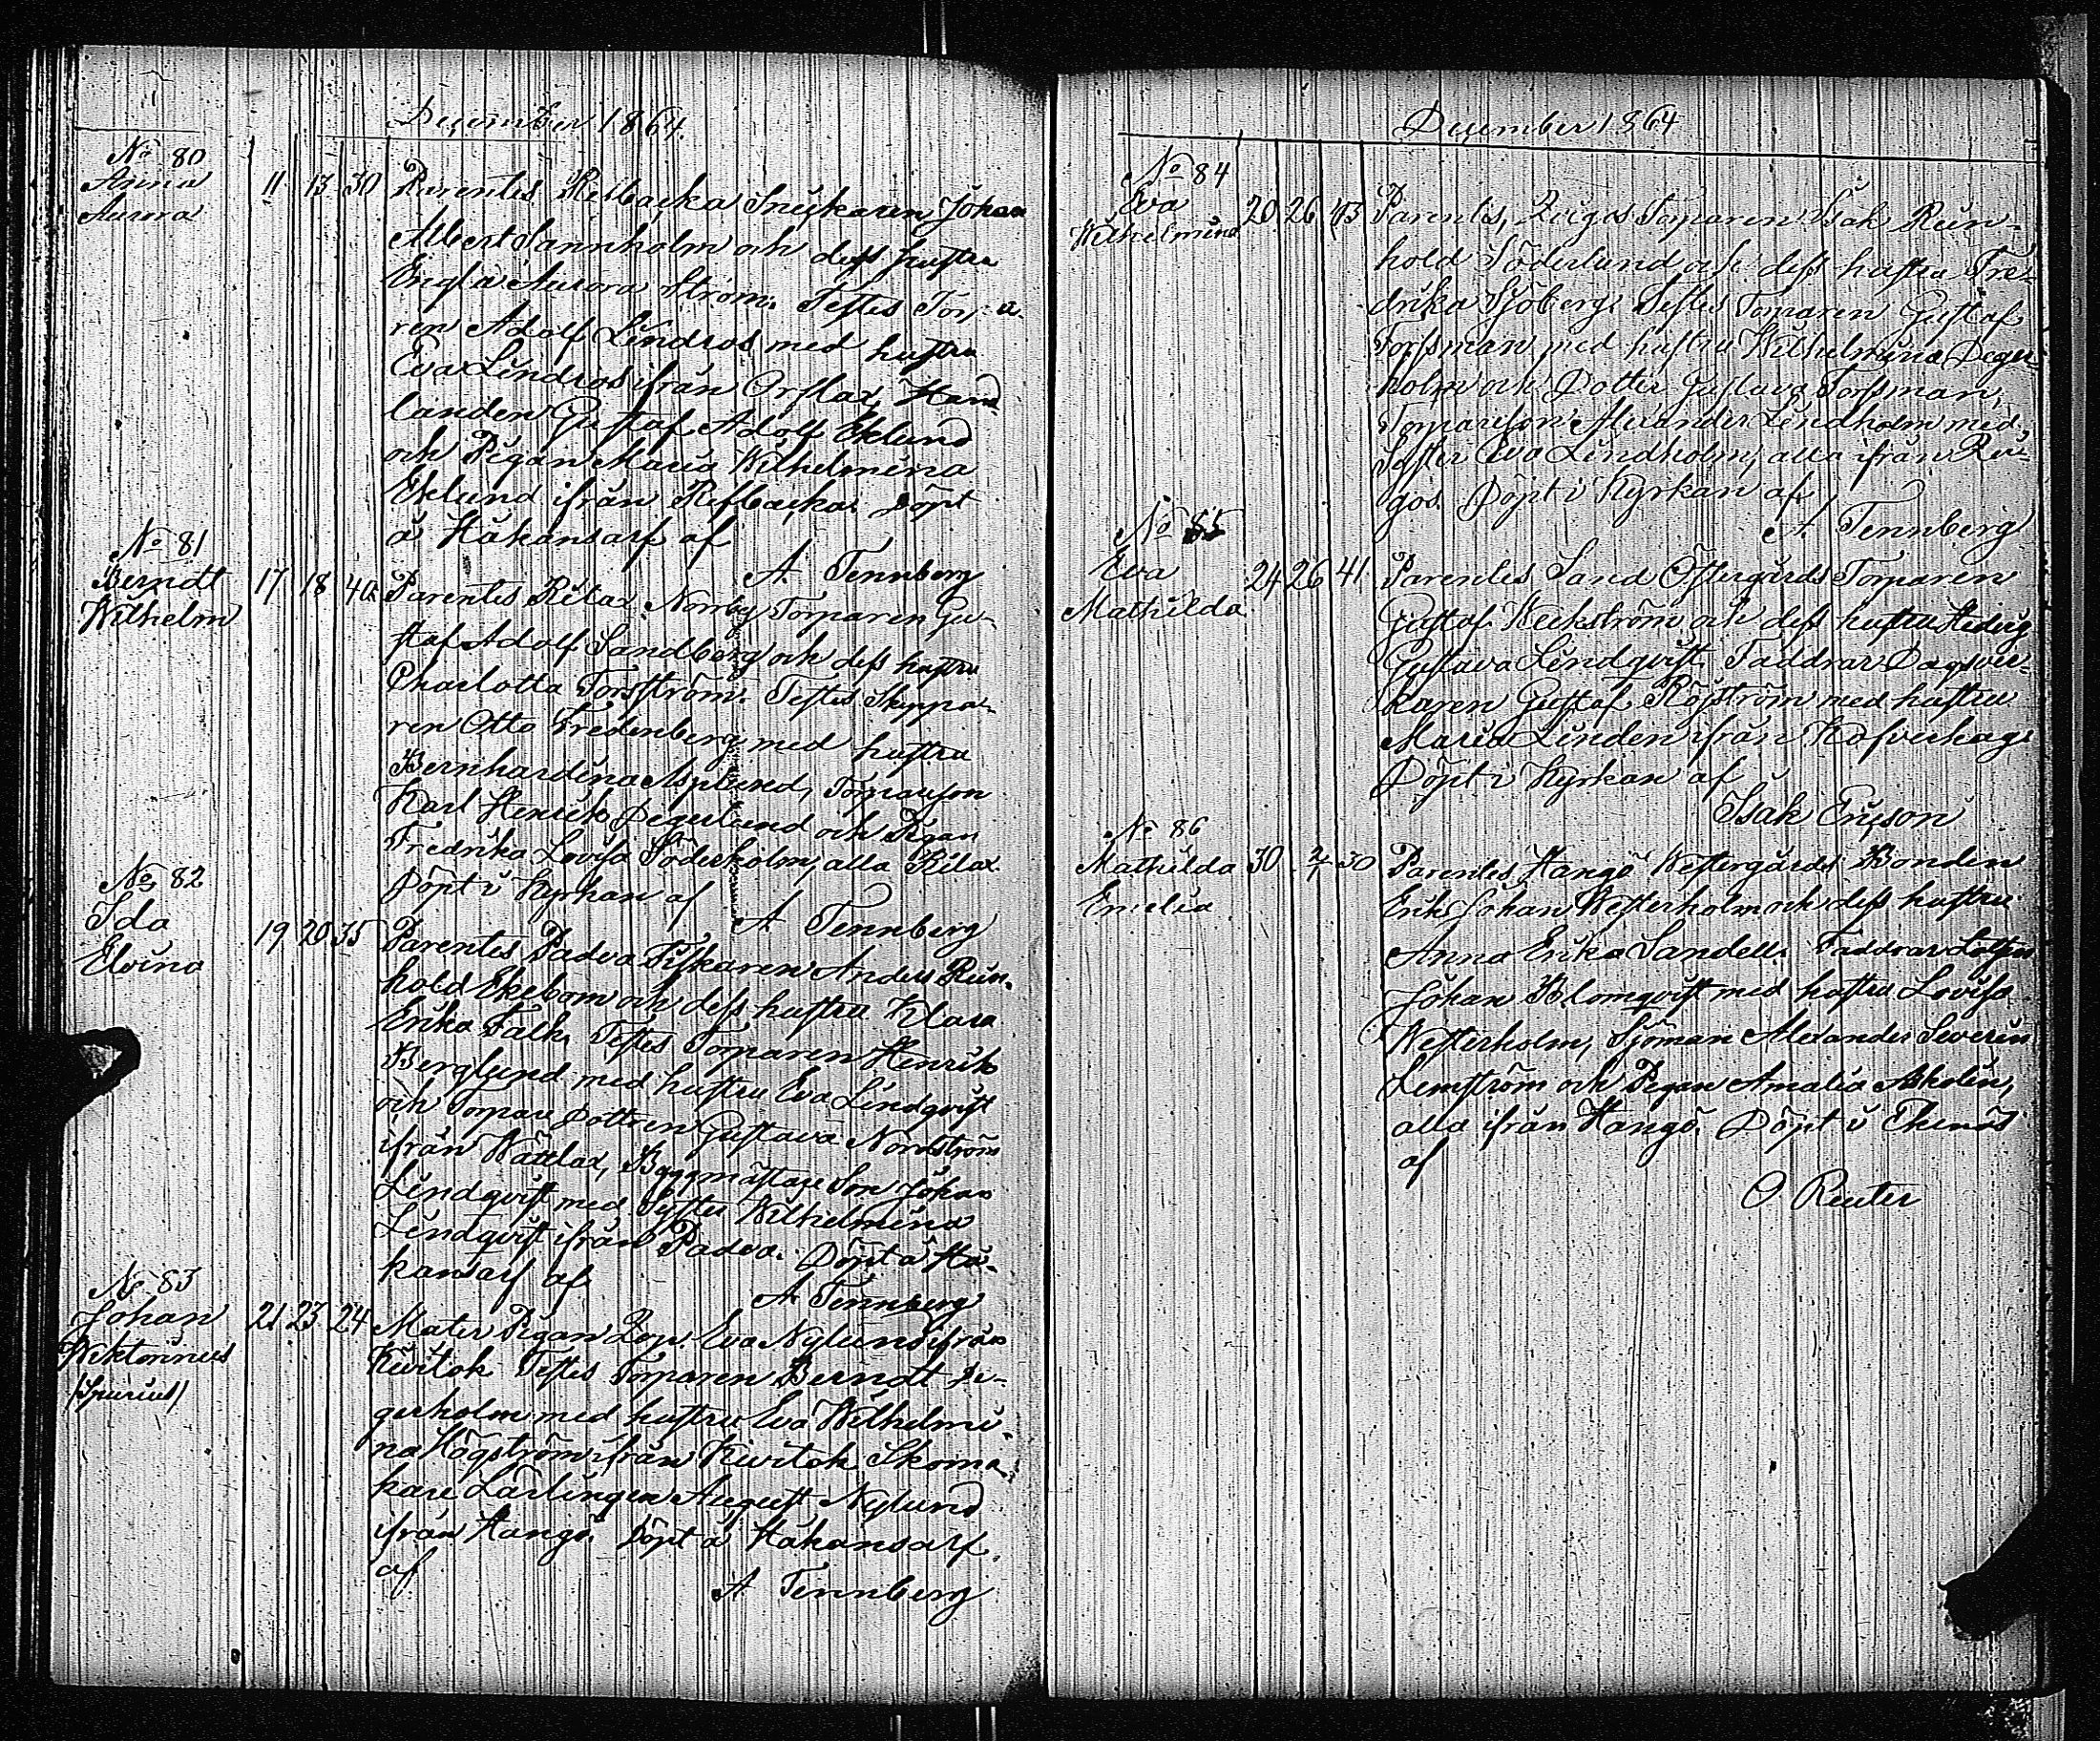 December 1864.
No 80
Anna
Aurora
11 13 30
Parentes Refbacka Snickaren Johan
Albert Dannholm och dess hustru
Engla Aurora Ström. Testes Torpa-
ren Adolf Lindros med hustru
Eva Lindros ifrån Orslax, Hand-
landen Gustaf Adolf Eklund
och Pigan Maria Wilhelmina
Eklund ifrån Refbacka. Döpt
å Håkansarf af
A. Tennberg
No 81
Berndt
Wilhelm
17 18 40
Parentes Rilax Norrby Torparen Gu-
staf Adolf Sandberg och dess hustru
Charlotta Forsström. Testes Skeppa-
ren Otto Fredenberg med hustru
Bernhardina Asplund, Torpareson
Karl Henrik Degerlund och Pigan
Fredrika Lovisa Söderholm, alla Rilax.
Döpt i Kyrkan af
A Tennberg
No 82
Ida
Elvina
19 20 35
Parentes Padva Fiskaren Anders Rein-
hold Ekebom och dess hustru Klara
Erika Falk. Testes Torparen Henrik
Berglund med hustru Eva Lindqvist
och Torpare Dottren Gustava Nordström
ifrån Wättlax, Byggmästare Son Johan
Lindqvist med Syster Wilhelmina
Lindqvist ifrån Padva. Döpt å Hå-
kansarf af
A Tennberg
No 83
Johan
Wiktorinus
(Spurius)
21 23 24
Mater Pigan Eva Nylund ifrån
Kuitok Testes Torparen Berndt De-
gerholm med hustru Eva Wilhelmi-
na Högström ifrån Kuitok Skoma-
kare Lärlingen August Nylund
ifrån Hangö. Döpt å Håkansarf.
af
A Tennberg
December 1864
No 84
Eva
Wilhelmina
20 26 43
Parentes, Torparen Isak Rein-
hold Söderlund och dess hustru Fre-
drika Sjöberg. Testes Torparen Gustaf
Forssman med hustru Wilhelmina Deger-
holm och Dotter Gustava Forssman,
Torpareson Alexander Lindholm med
Syster Eva Lindholm, alla ifrån
Döpt i Kyrkan af
A. Tennberg
No 85
Eva
Mathilda
24 26 41
Parentes Sand Östergårds Torparen
Gustaf Weckström och dess hustru Hedvig
Gustava Lindqvist. Faddrar Dagsver-
karen Gustaf Röjström med hustru
Maria Linden ifrån Kofverhage
Döpt i Kyrkan af
Isak Ericson
No 86
Mathilda
Emelia
30 2/1 30
Parentes Hangö Westergårds Bonden
Erik Johan Westerholm och dess hustru
Anna Erika Sandell. Faddrar Lotsen
Johan Blomqvist med hustru Lovisa
Westerholm, Sjöman Alexander Severin
Lemström och Pigan Amalia Askolin,
alla ifrån Hangö. Döpt i Ekenäs
af
O Reuter